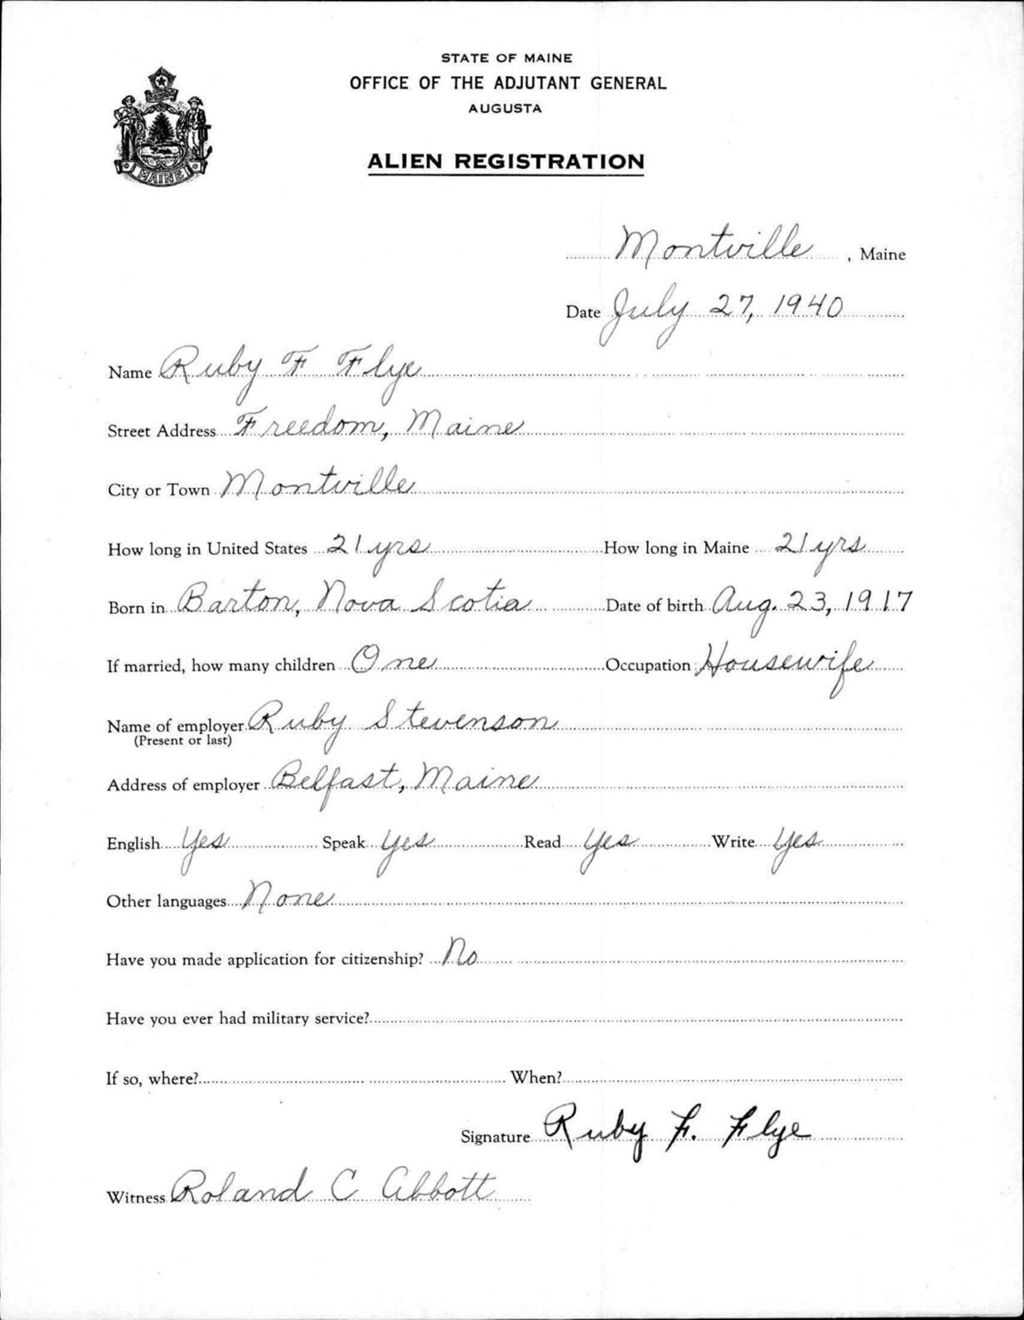 STATE OF MAINE
OFFICE OF THE ADJUTANT GENERAL
AUGUSTA
ALIEN REGISTRATION
MAINE
Montville, Maine
Date July 27, 1940
Name Ruby F Flye
Street Address Freedom, Maine
City or Town Montville
How long in United States 21 yrs How long in Maine 21 yrs
Born in Barton, Nova Scotia Date of birth Aug. 23, 1917
If married, how many children One Occupation Housewife
Name of employer Ruby Stevenson
(Present or last)
Address of employer Belfast, Maine
English Yes Speak Yes Read Yes Write Yes
Other languages None
Have you made application for citizenship? No
Have you ever had military service?
If so, where? When?
Signature Ruby F. Flye
Witness Roland C Abbott